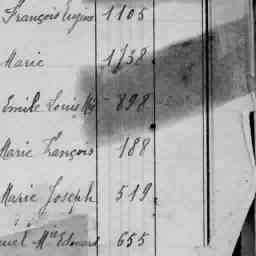 François Eugène 1105
Marie 1738
Emile Louis M. 898
Marie François 188
Marie Joseph 519.
Mie Edouard 655